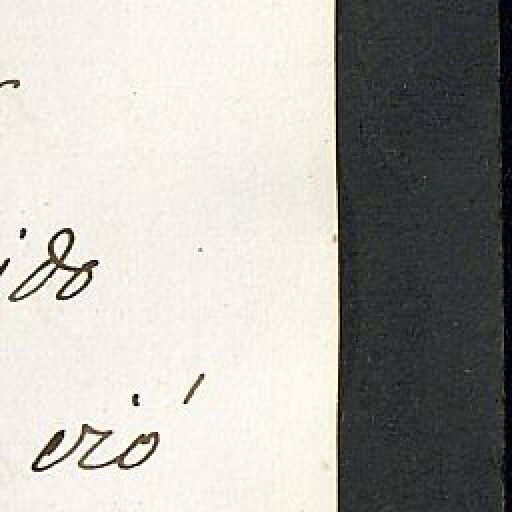 ido
erió